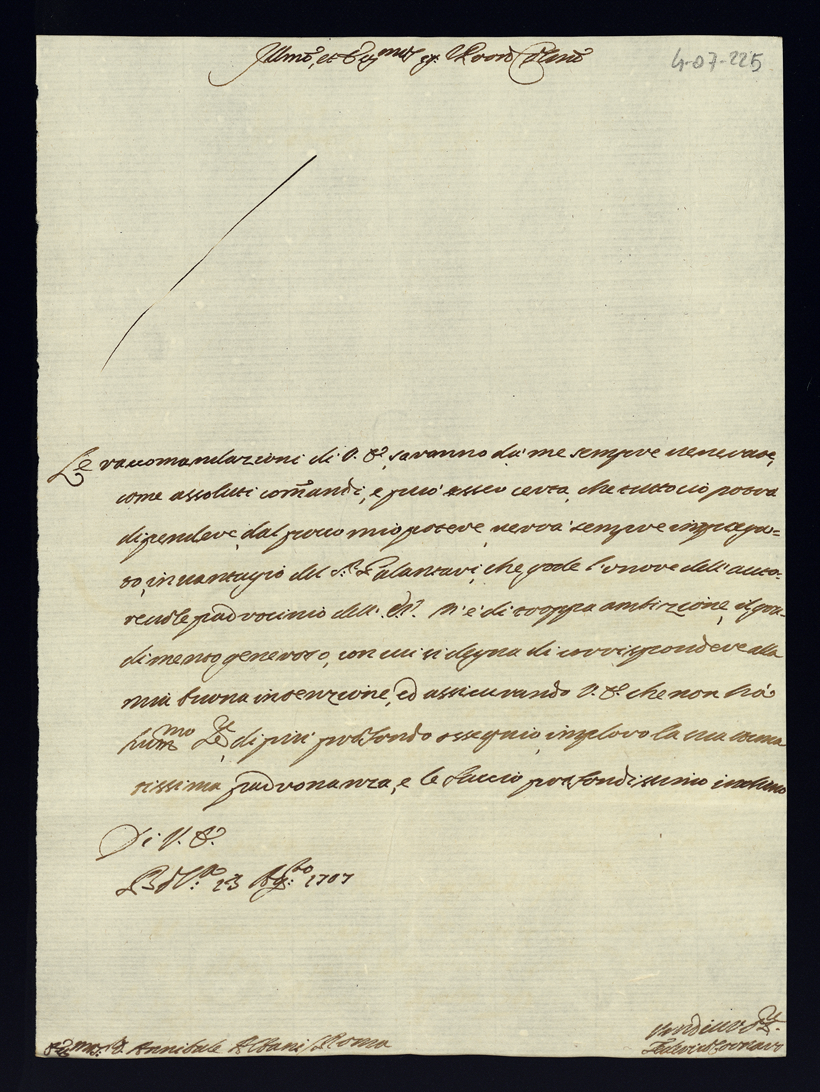 Illmo, et Eccmo Sigr Pron Colmo
4-07-225
Le raccomandazioni di V. E. saranno da me sempre venerate,
come assoluti comandi, e può esser certa, che tutto ciò potrà
dipendere dal poco mio potere, verrà sempre impiega=
to, in vantagio del Sr. Palantari, che gode l'onore dell'auto=
revole padrocinio dell' E. V. M'è di troppa ambizione, il gra=
dimento generoso, con cui si degna di corrispondere alla
mia buona intenzione, ed assicurando V. E. che non hà
di più profondo ossequio, imploro la sua
tissima padronanza, e le faccio profondissimo inchino
Di V. E.
23 Agsto 1707
Annibale Albani Roma